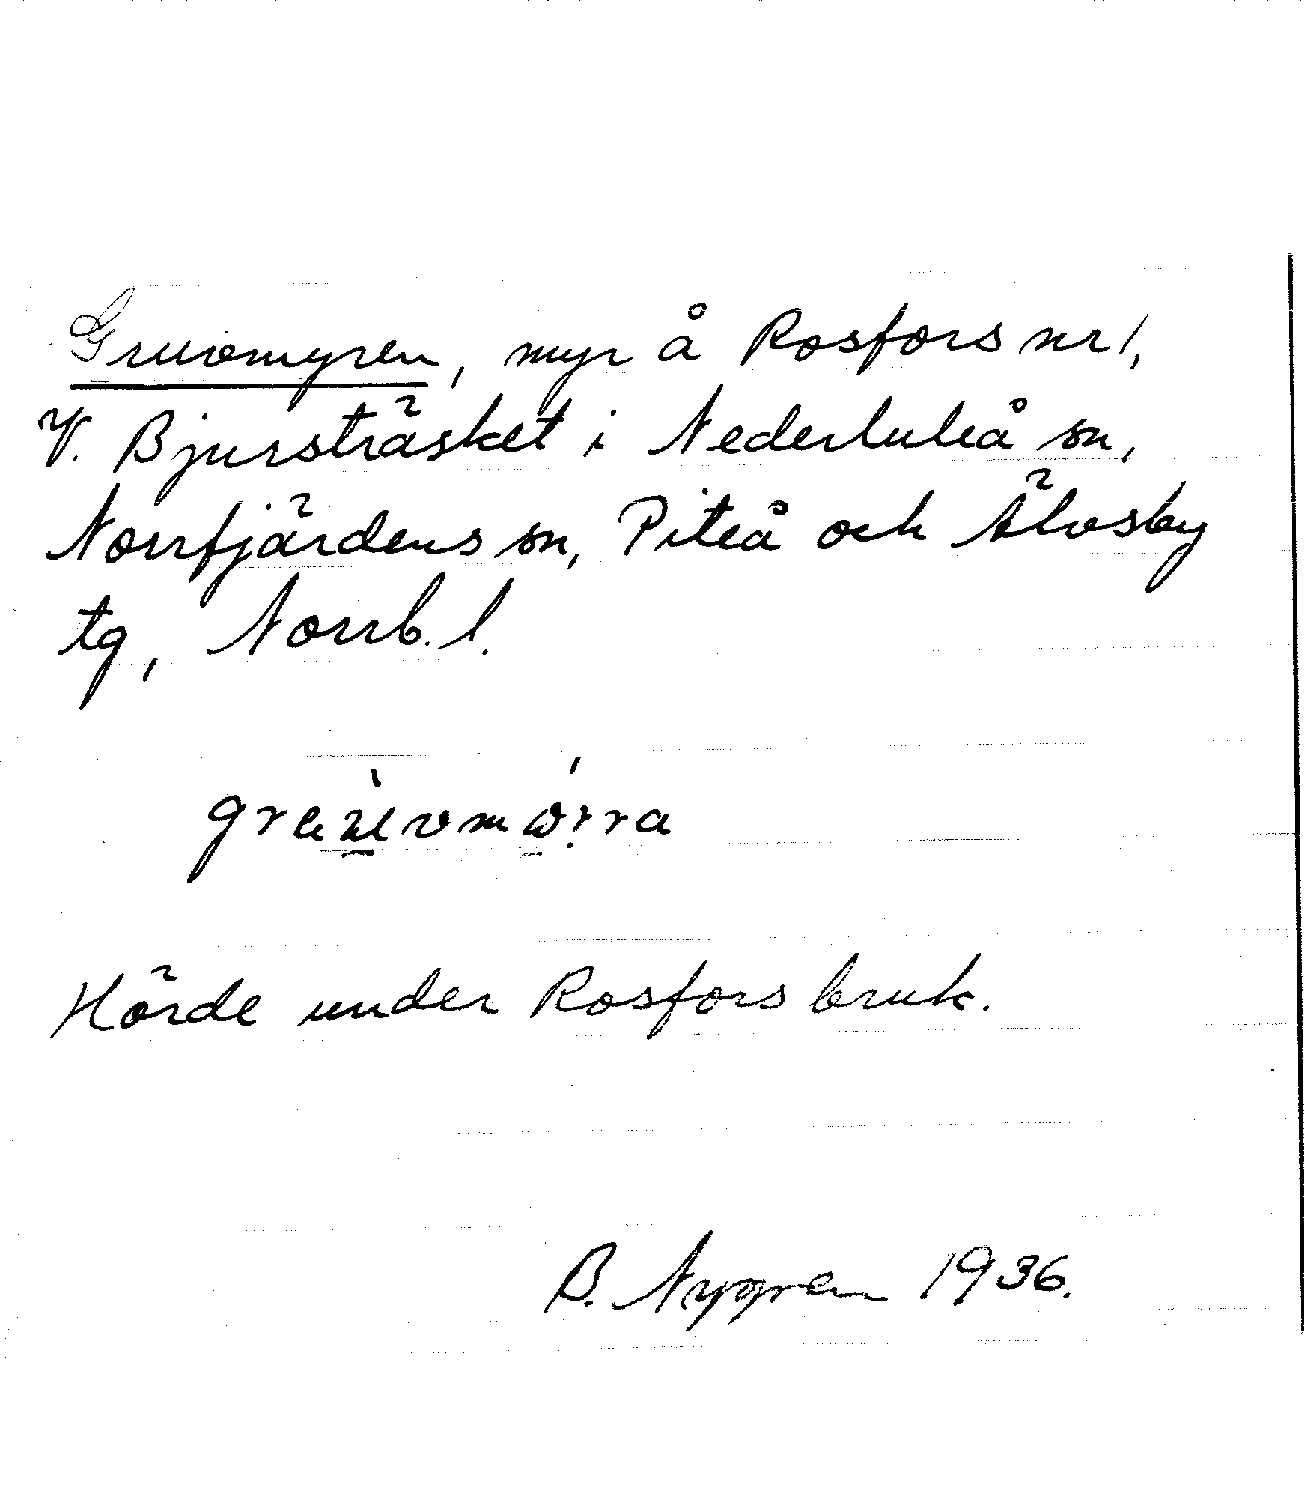 Gruvomyren, myr å Rosfors nr 1,
V. Bjursträsket i Nederluleå sn,
Norrfjärdens sn, Piteå och Älvsby
tg, Norrb. l.
Hörde under Rosfors bruk.
B. Nygren 1936.